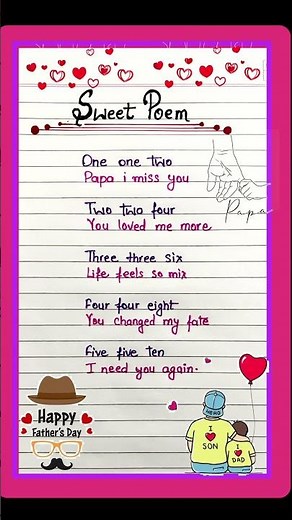 Sweet Poem
One one two
Papa i miss you
Papa
Two two four
You loved me more
Three three six
Life feels so mix
Four four eight
You changed my fate
Five five ten
I need you again.
Happy
Father's Day
HERO
I ♥ SON
I ♥ DAD